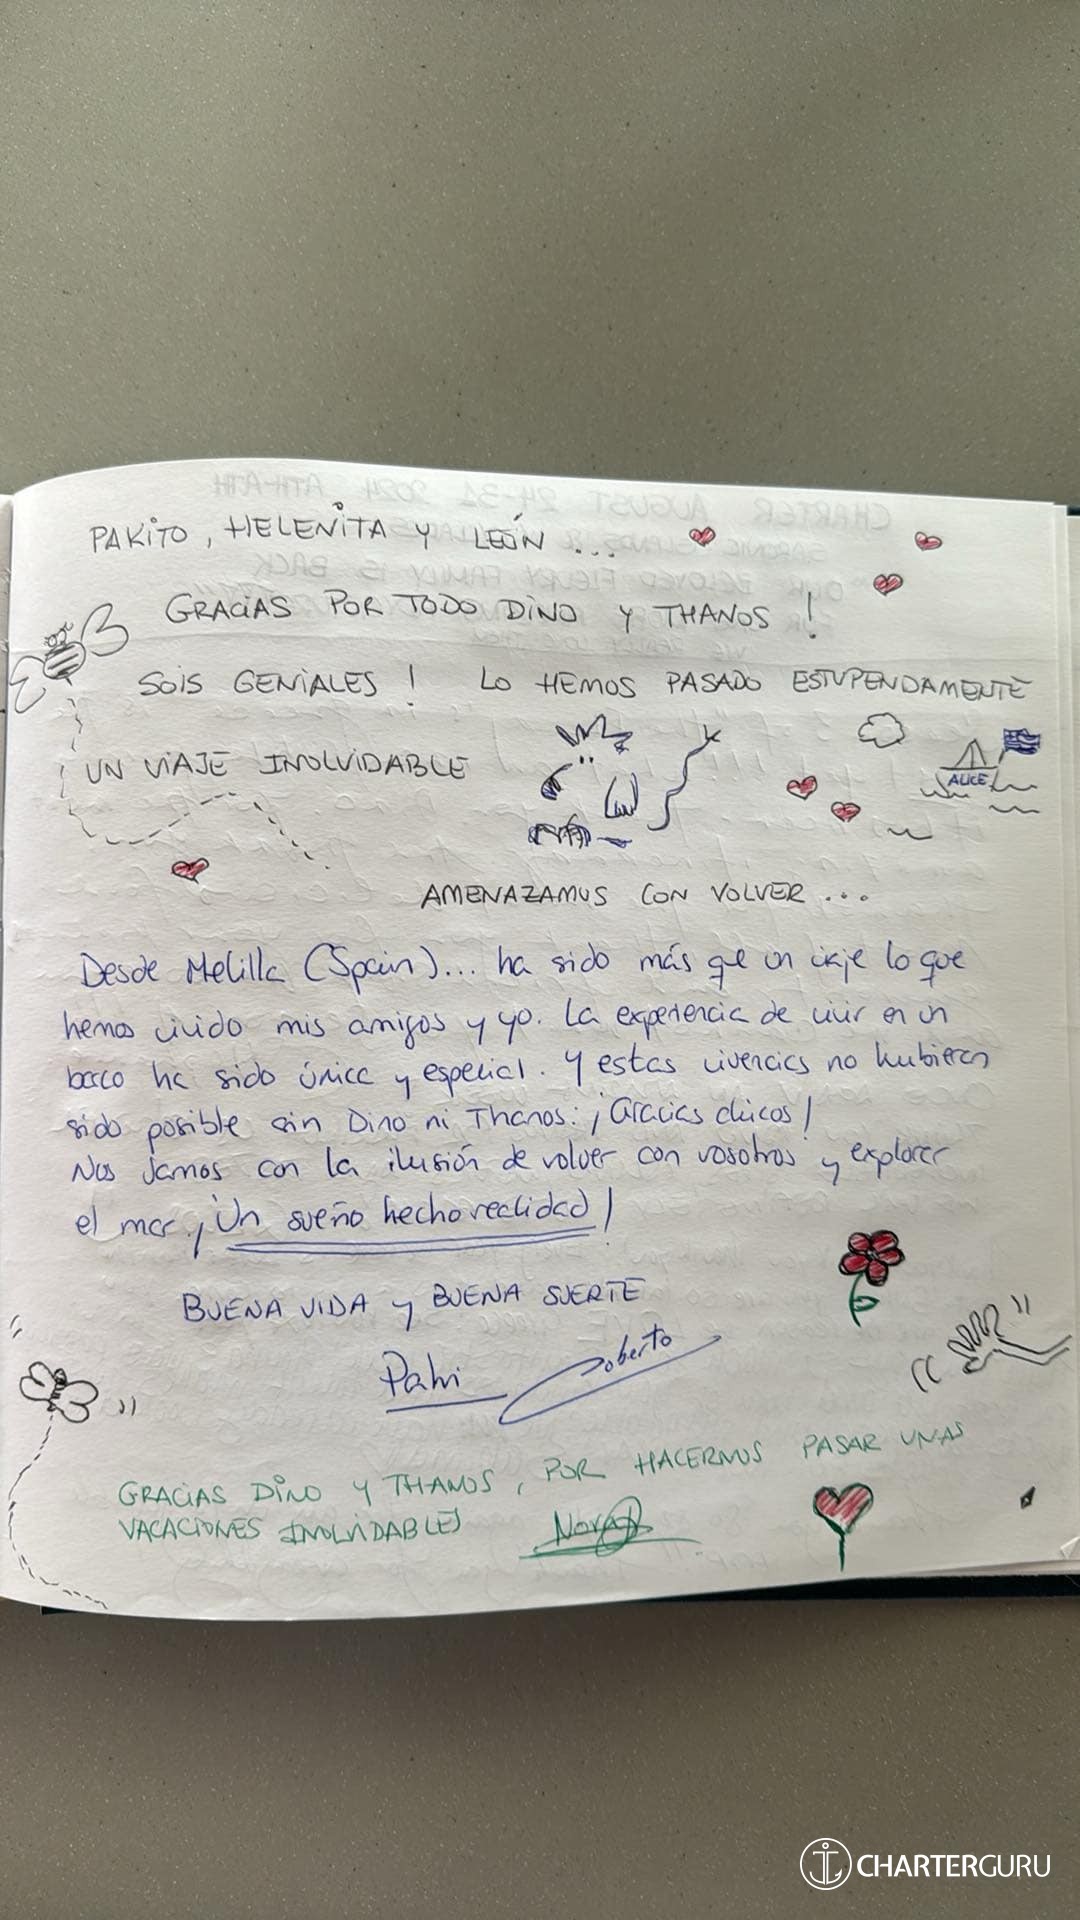 PAKITO, HELENITA Y LEÓN ...
GRACIAS POR TODO DINO Y THANOS !
SOIS GENIALES ! LO HEMOS PASADO ESTUPENDAMENTE
UN VIAJE INOLVIDABLE
ALICE
AMENAZAMOS CON VOLVER ...
Desde Melilla (Spain)... ha sido más que un viaje lo que
hemos vivido mis amigos y yo. La experiencia de vivir en un
barco ha sido única y especial. Y estas vivencias no hubieran
sido posible sin Dino ni Thanos: ¡Gracias chicos!
Nos vamos con la ilusión de volver con vosotros y explorar
el mar. ¡Un sueño hecho realidad!
BUENA VIDA Y BUENA SUERTE
Roberto
GRACIAS DINO Y THANOS, POR HACERNOS PASAR UNAS
VACACIONES INOLVIDABLES
CHARTERGURU